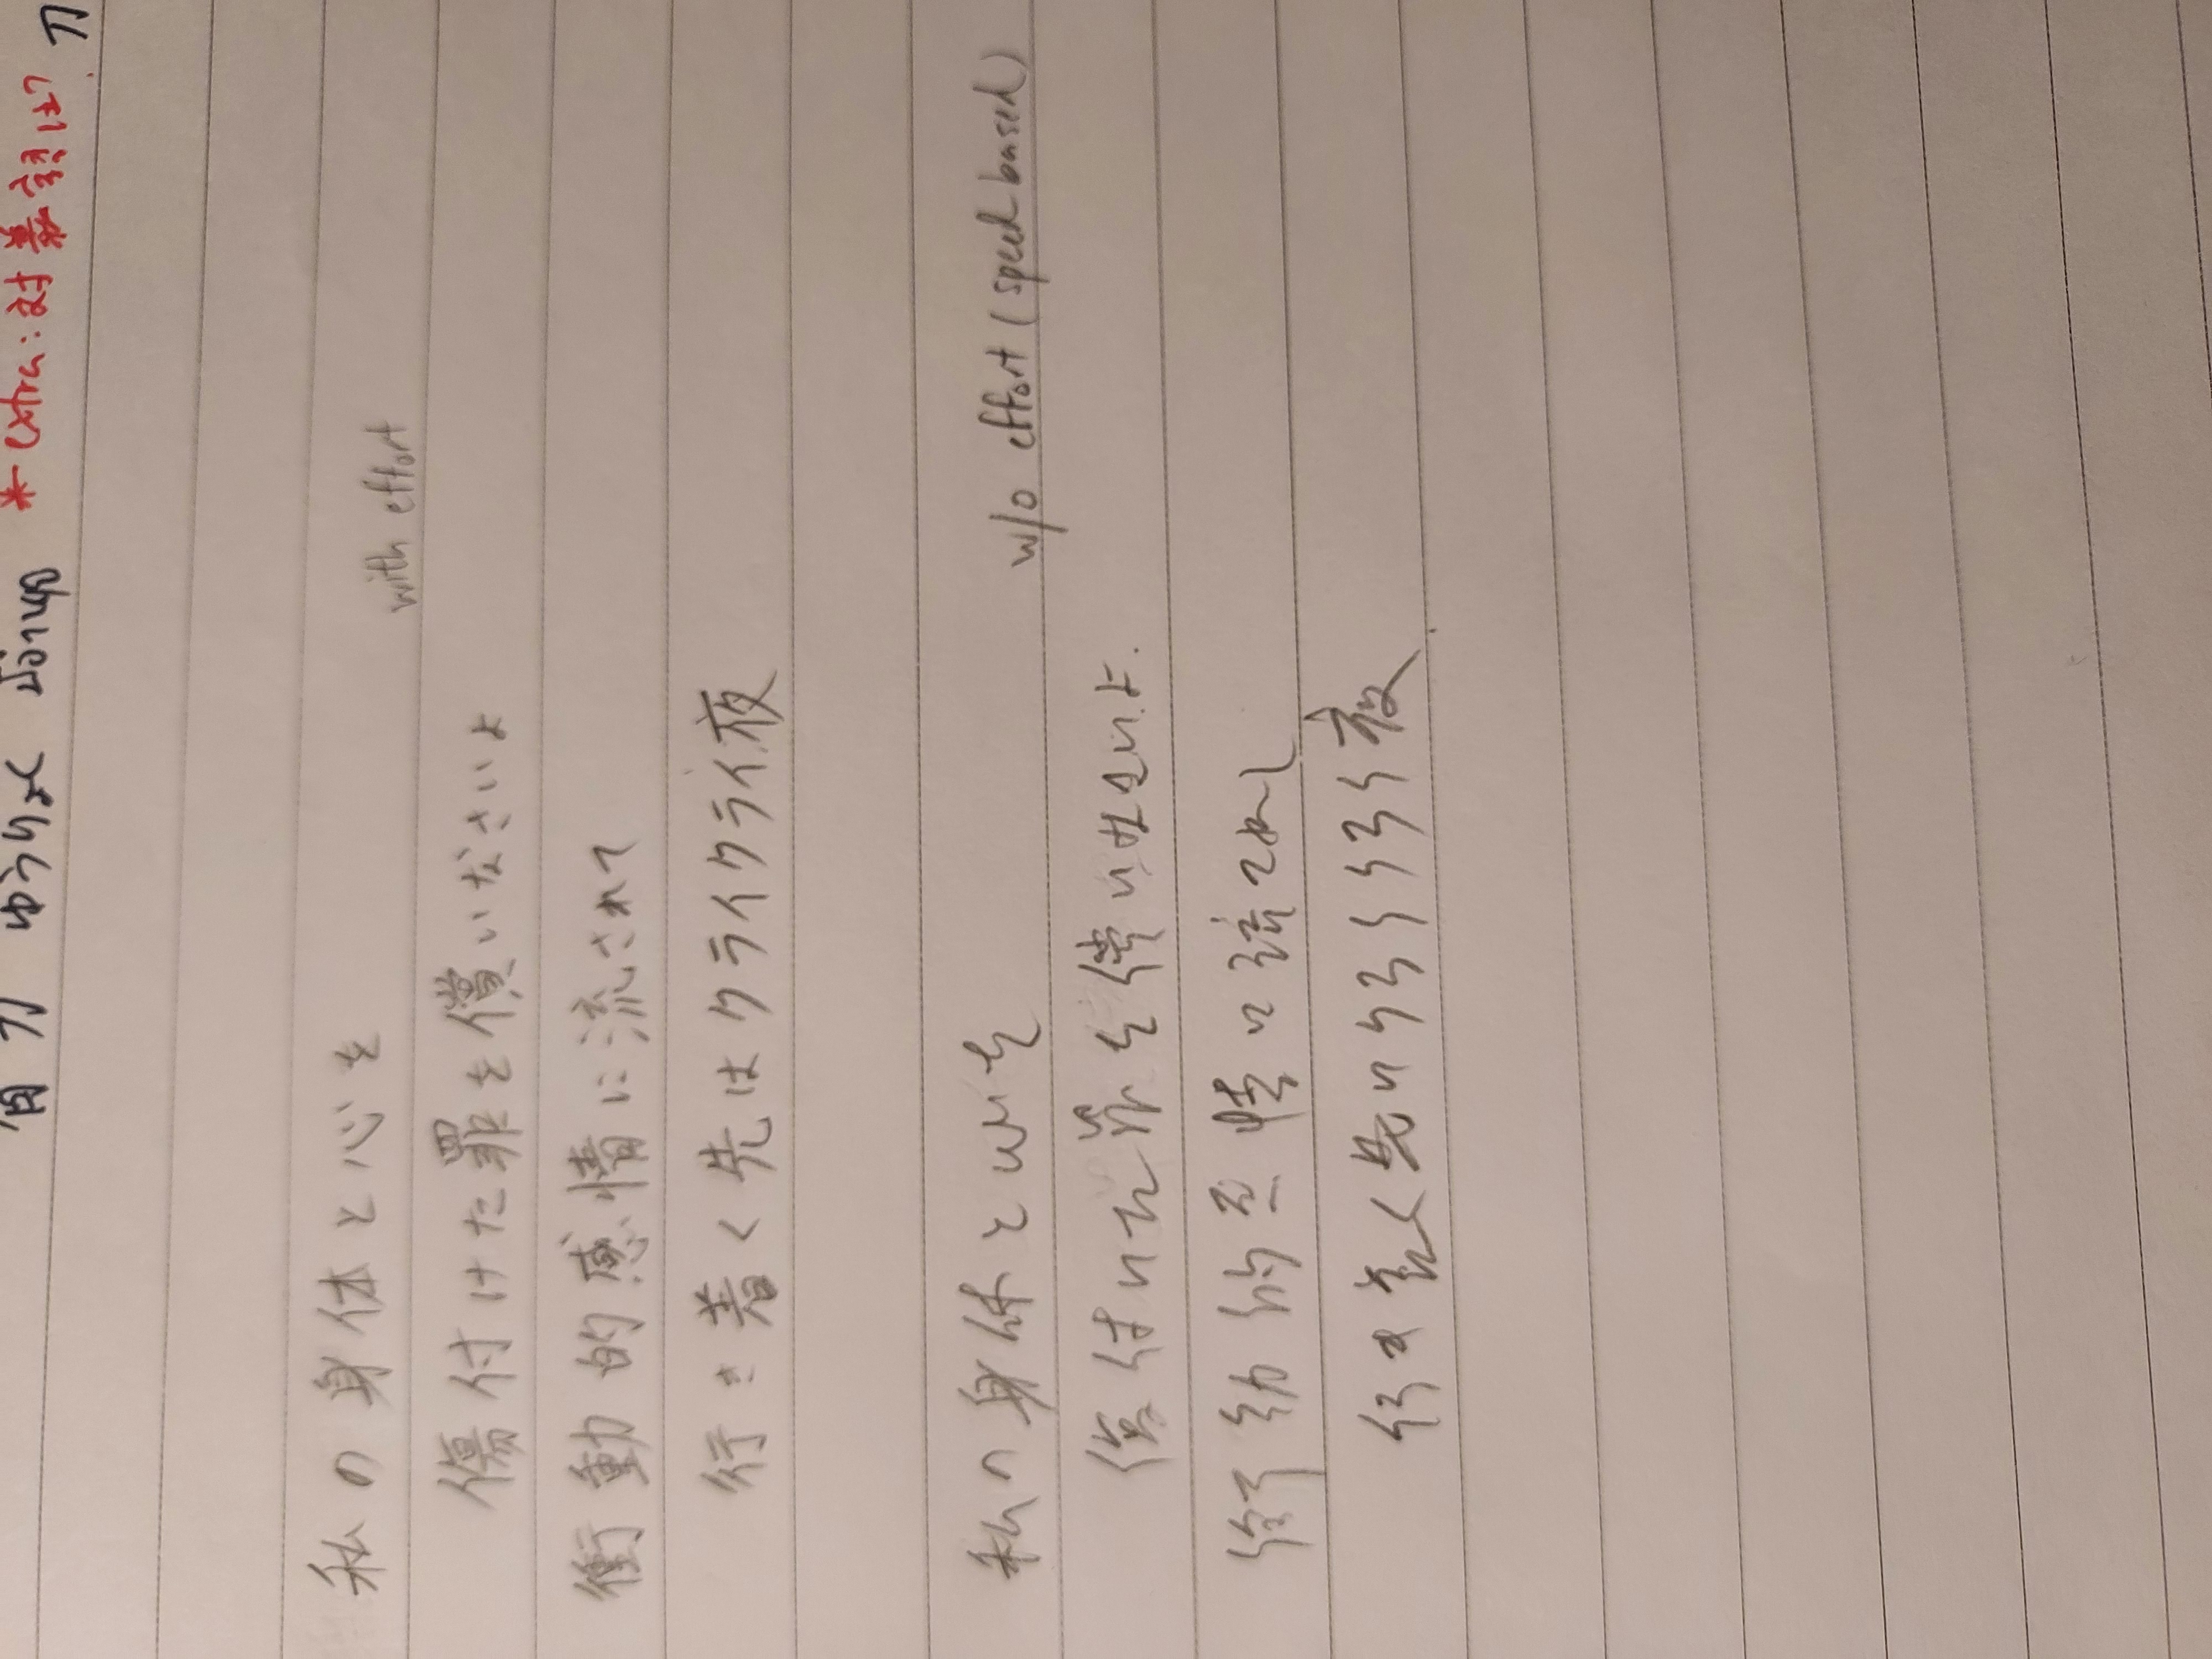 ゆうりメ น้อามุ *extra: 対義語は?
私の身体と心を
with effort
傷付けた罪を償いなさいよ
衝動的感情に流されて
行き着く先はクライクライ夜
私の身体と心を
w/o effort (speed based)
傷付けた罪を償いなさいよ.
衝動的感情に流されて
行き着く先はクライクライ夜